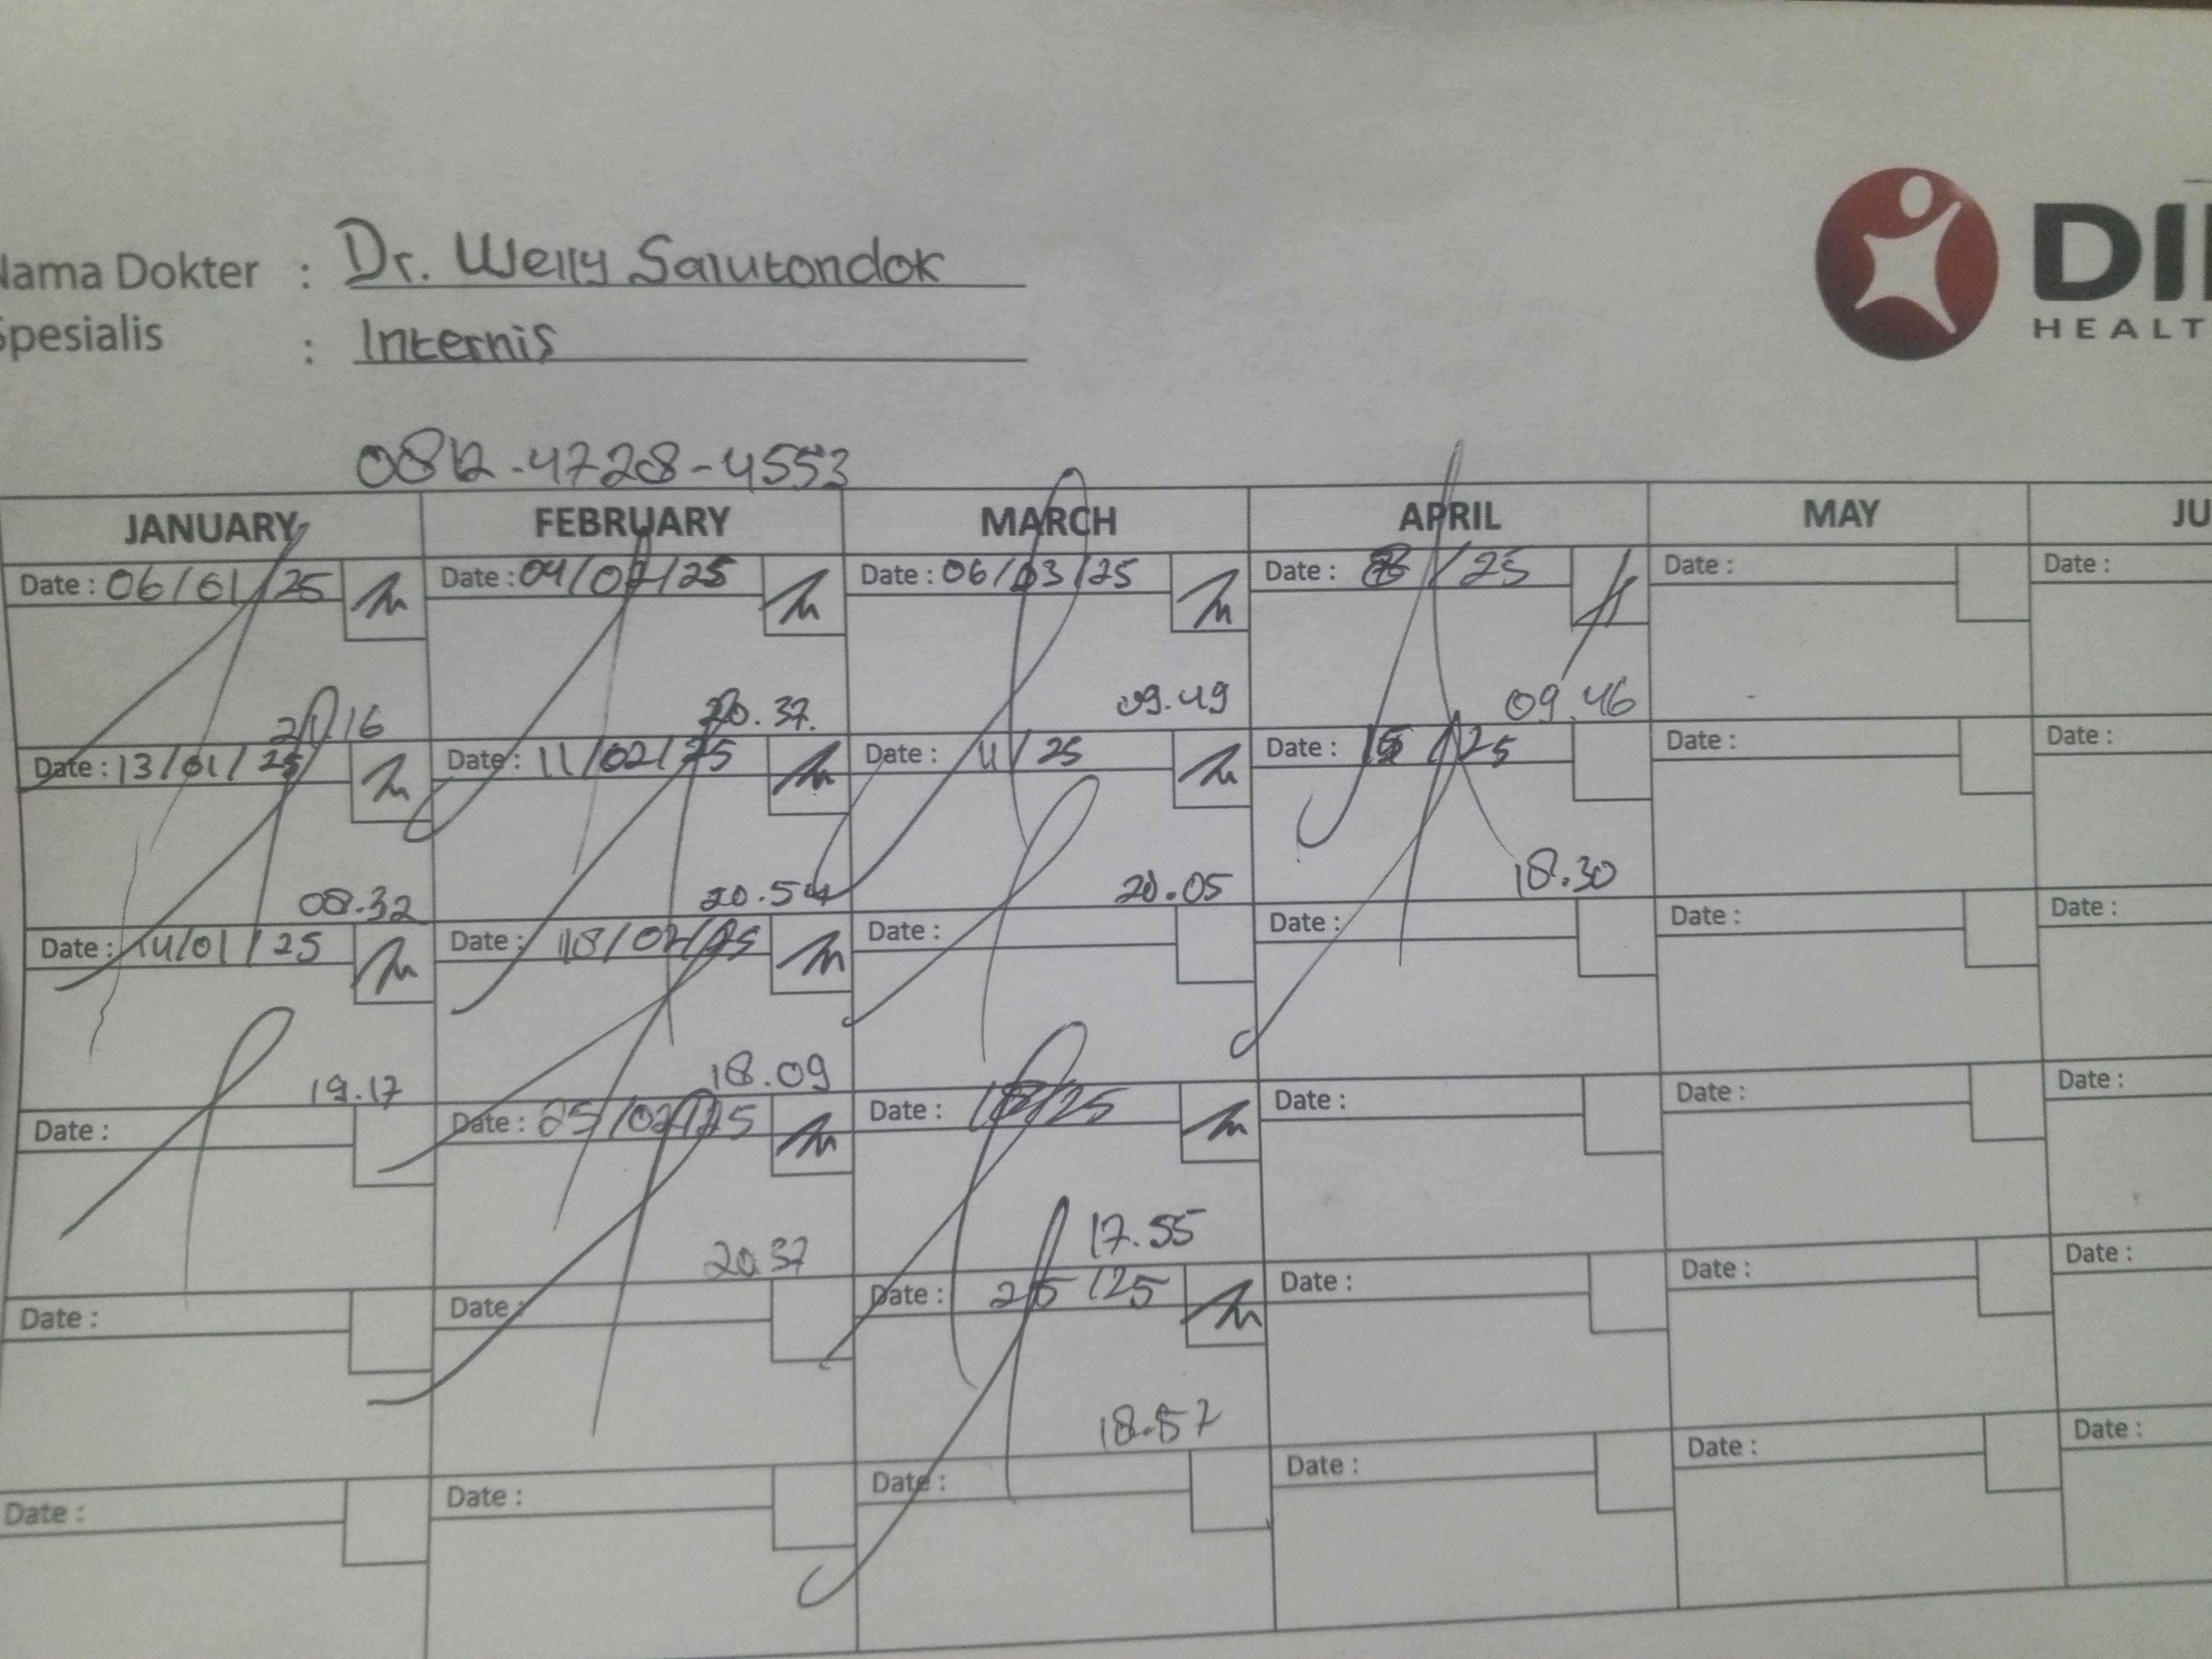 Nama Dokter : Dr. Welly Salutondok
Spesialis : Internis
DI
HEALT
0812-4728-4553
JANUARY FEBRUARY MARCH APRIL MAY JU
Date : 06/01/25 Date : 04/02/25 Date : 06/03/25 Date : /25 Date : Date :
21.16 20.37. 09.49 09.46
Date : 13/01/25 Date : 11/02/25 Date : 11/25 Date : 15/25 Date : Date :
08.32 20.54 20.05 18.30
Date : 14/01/25 Date : 18/02/25 Date : Date : Date : Date :
19.17 18.09
Date : Date : 25/02/25 Date : 18/25 Date : Date : Date :
20.37 17.55
Date : Date : Date : 25/25 Date : Date : Date :
18.57
Date : Date : Date : Date : Date : Date :